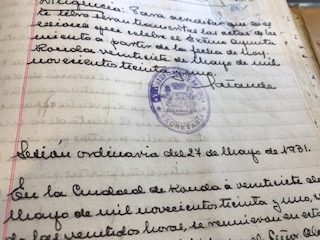 Diligencia: Para acreditar que en es-
te libro se transcriben las actas de las
sesiones que celebre el Excmo Ayunta-
miento a partir de la fecha de hoy.
Ronda veintisiete de Mayo de mil
novecientos treinta y uno.
SECRETARIA
Sesión ordinaria del 27 de Mayo de 1931.
En la Ciudad de Ronda a veintisiete de
Mayo de mil novecientos treinta y uno,
de las veintidós horas, se reunieron en esta
el Señor Alc